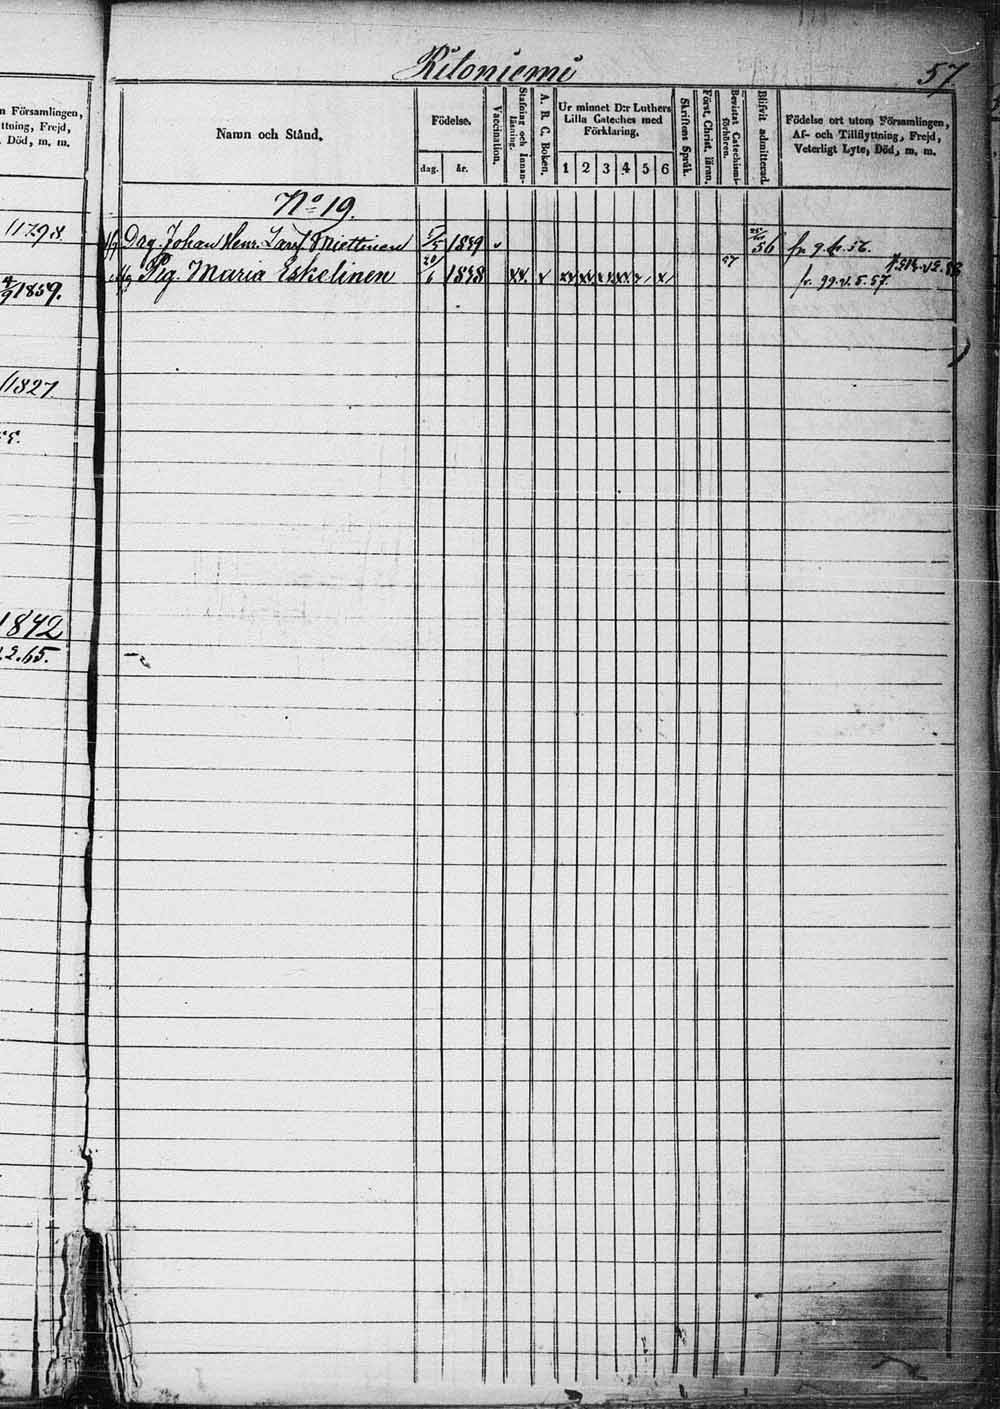 Kiloniemi
57.
n Församlingen,
ttning, Frejd,
Död, m. m.
Namn och Stånd.
Födelse.
dag. år.
Vaccination.
Stafning och Innanläsning.
A. B. C. Boken.
Ur minnet D:r Luthers
Lilla Cateches med
Förklaring.
1 2 3 4 5 6
Skriftens Språk.
Först. Christ. läran.
Bevistat Catechismiförhören.
Blifvit admitterad.
Födelse ort utom Församlingen,
Af- och Tillflyttning, Frejd,
Veterligt Lyte, Död, m. m.
No 19.
Drg. Johan Henr. Miettinen 5/5 1839 56 fr. 9. 56.
Pig. Maria Eskelinen 20/6 1838 xx. x 57 fr. 99. v. 5. 57.
1798
4/9 1859.
1827
1842
.2.65.